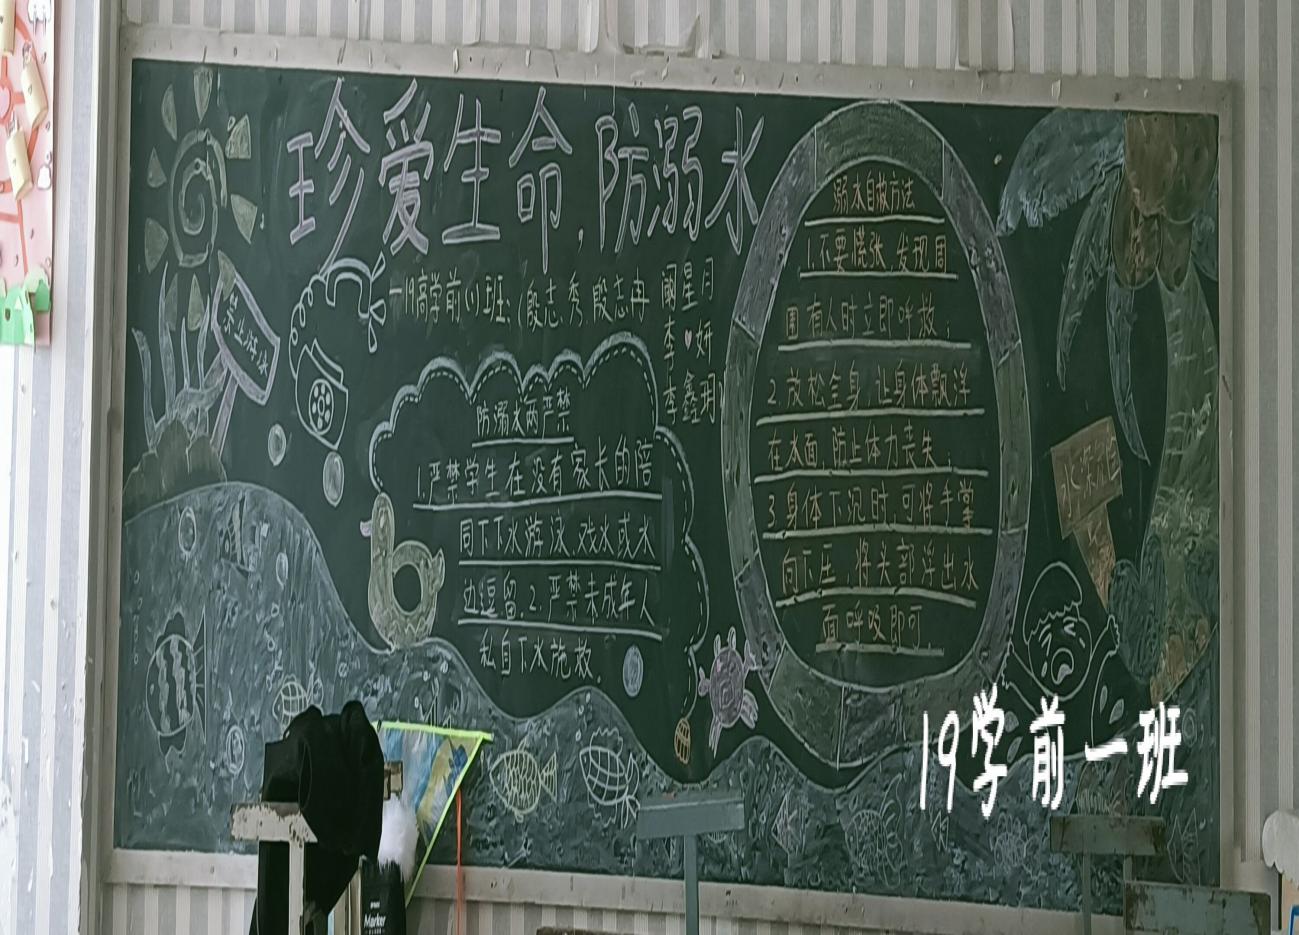 珍爱生命,防溺水
一19高学前(1)班:(殷志秀 殷志冉 阚星月
李♥妍
李鑫玥)
禁止游泳
防溺水两严禁
1.严禁学生在没有家长的陪
同下下水游泳、戏水或水
边逗留.2.严禁未成年人
私自下水施救.
溺水自救方法
1.不要慌张,发现周
围有人时立即呼救;
2.放松全身,让身体飘浮
在水面,防止体力丧失;
3.身体下沉时,可将手掌
向下压,将头部浮出水
面呼吸即可.
水深危险
19学前一班
Marker